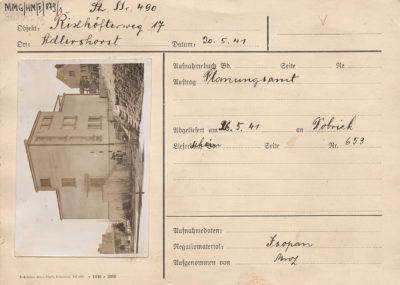 MMG/HM/5/
St. Nr. 490
Objekt: Rixhöfterweg 17
Ort: Adlershorst Datum: 20.5.41
Aufnahmebuch Bd. Seite Nr.
Auftrag Planungsamt
Abgeliefert am 26.5.41 an
Liefer Seite Nr. 653
Aufnahmedaten:
Negativmaterial: Isopan
Aufgenommen von